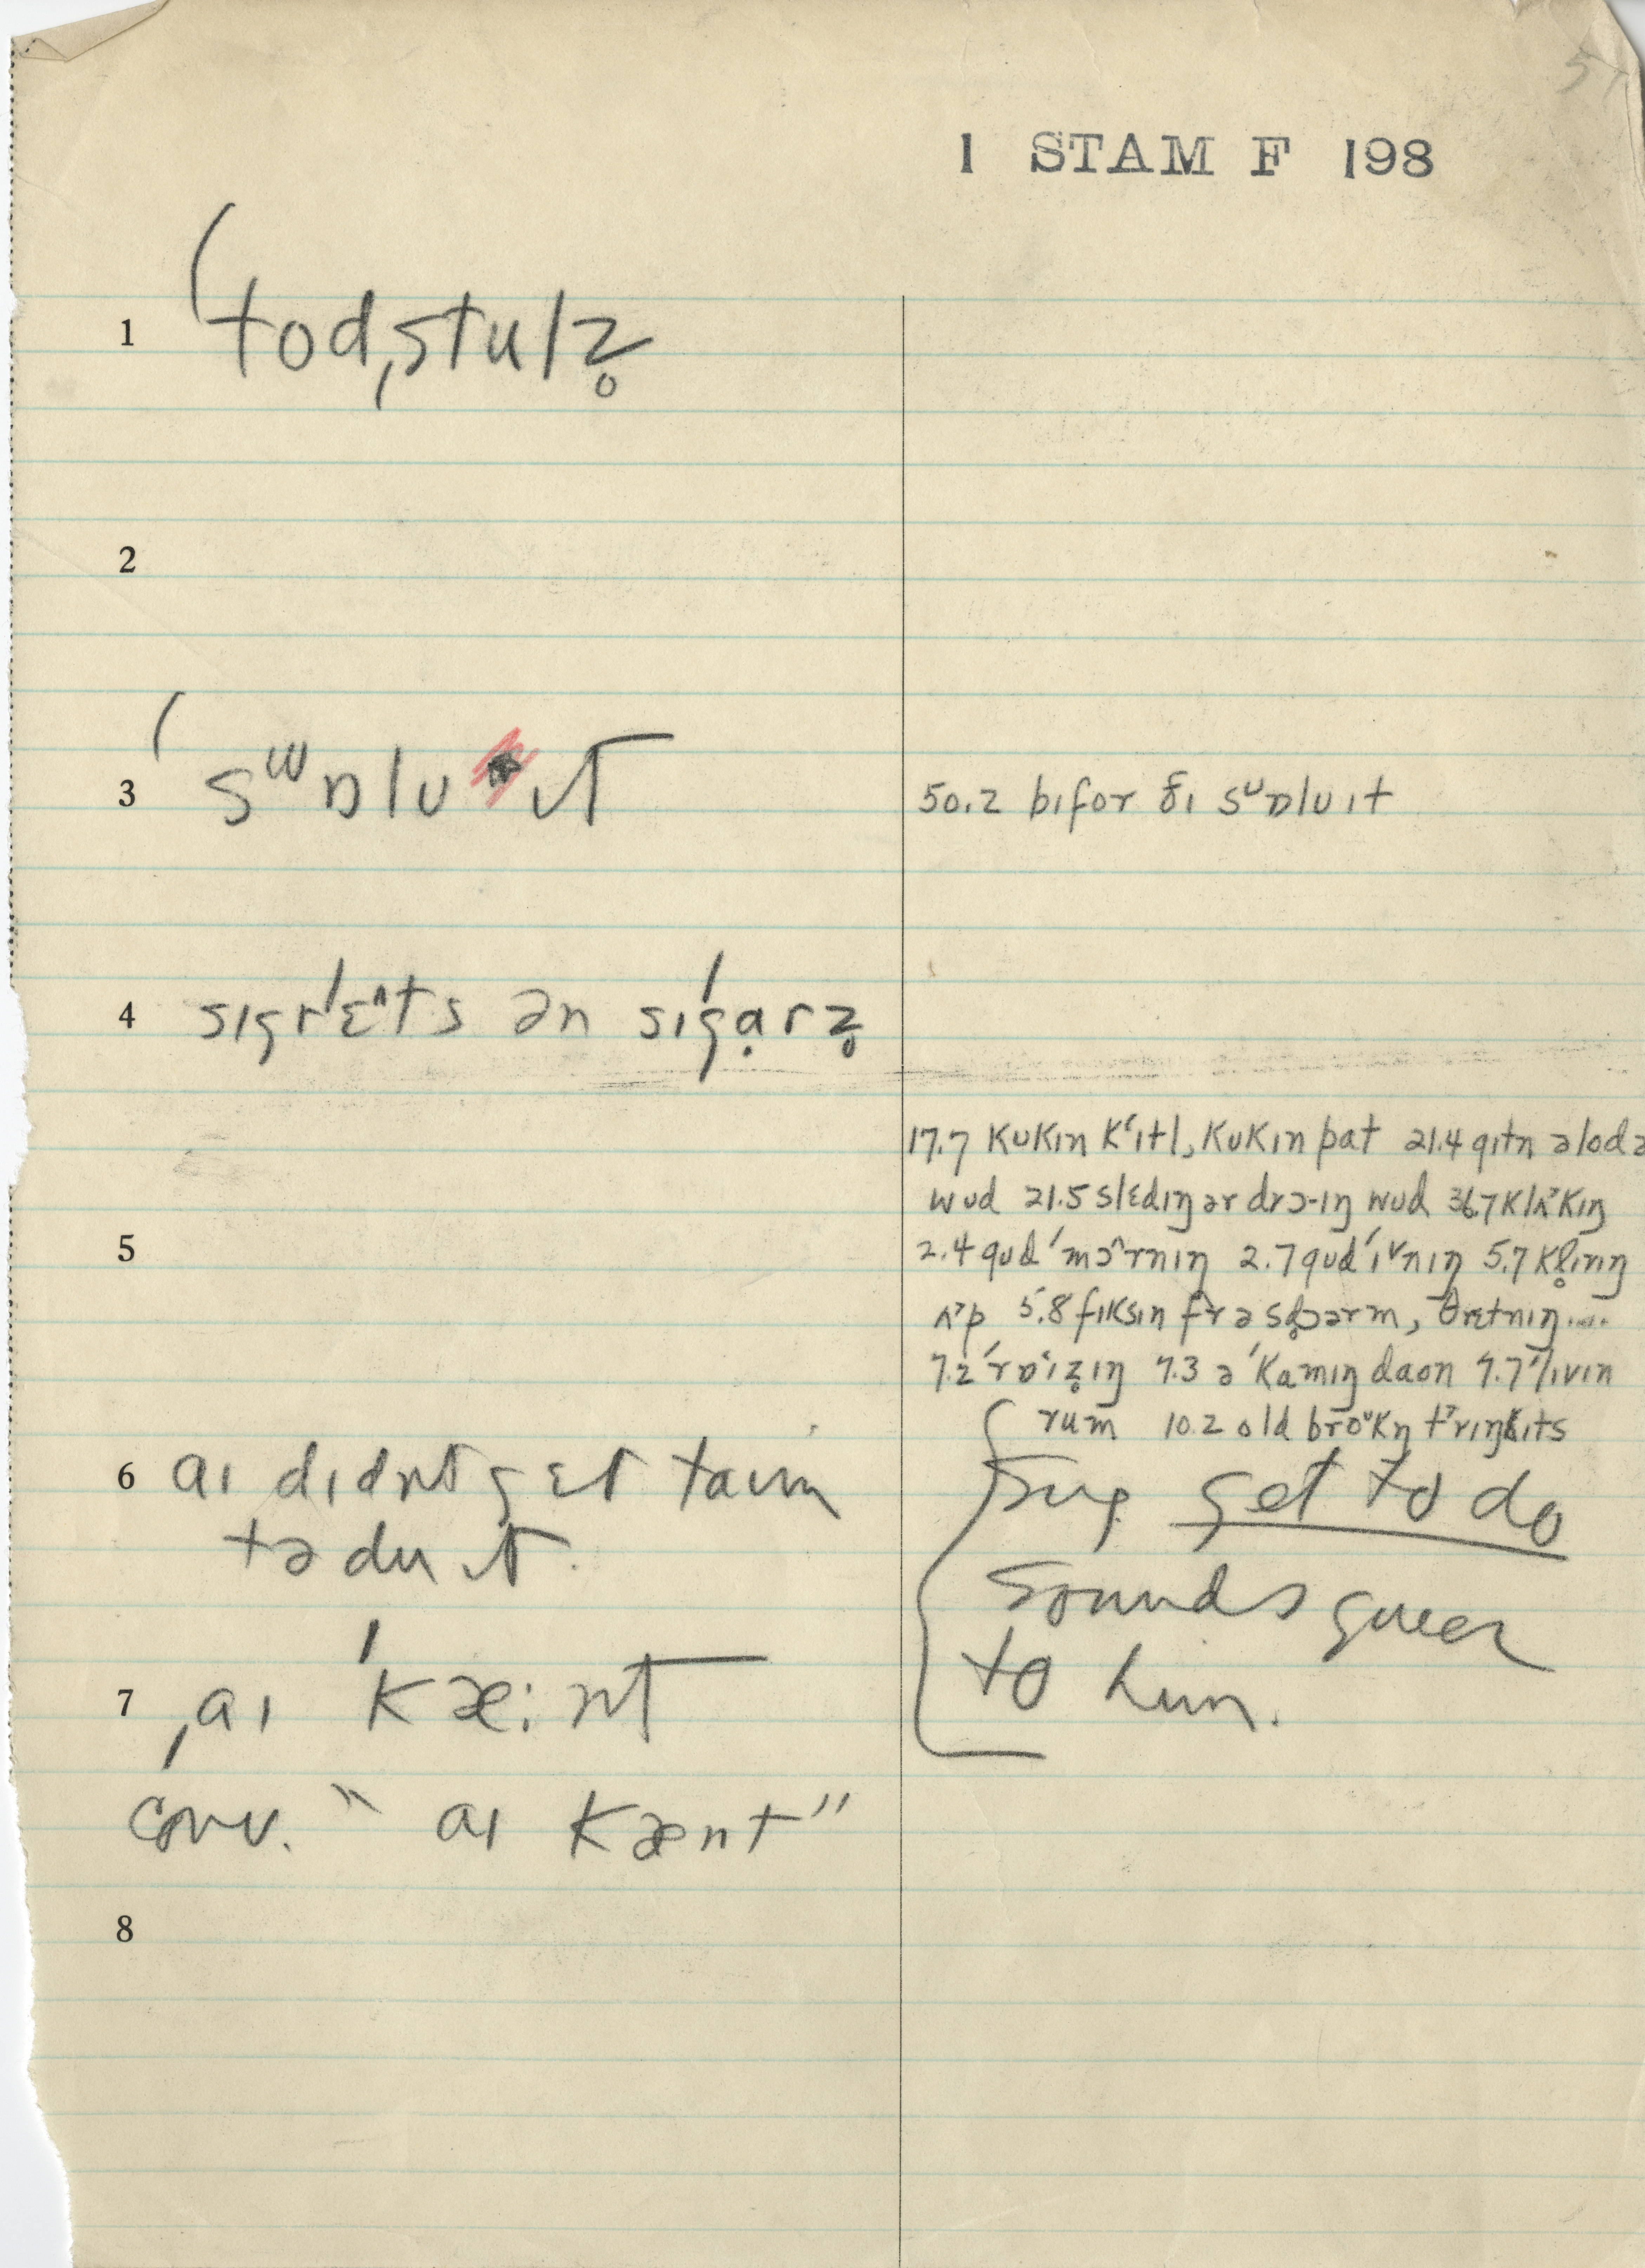 1 STAM F 198
1 (tod,stulz̥
2
3 (sɯɒlʊ ɪt
50.2 bɪfor ðɪ sᶷɒlʊɪt
4 sɪgrˈɛ^ts ən sɪˈgɑ̣rz̥
17.7 kʊkɪn kʻɪtl, kʊkɪn pat 21.4 gɪtn ə lod ə
wud 21.5 slɛdɪŋ ər drɔ-ɪŋ wud 36.7 klʌ˃kɪŋ
5
2.4 gud ˈmɔ^rnɪŋ 2.7 gud ˈiᵛnɪŋ 5.7 kl̥ɪrɪŋ
ʌ˃p 5.8 fɪksɪn fr ə sd̥ɔərm, θrɛtnɪŋ....
7.2 ˈrɒɪz̥ɪŋ 7.3 ə ˈkamɪŋ daon 7.7 ˈlɪvɪn
rum 10.2 old broᶷkŋ t˃rɪŋkɪts
6 aɪ dɪdnt gɛt taɪm
tə du ɪt.
{ sug. get to do
sounds queer
to him.
7 ˌaɪ ˈkæːnt
conv. " aɪ kænt"
8